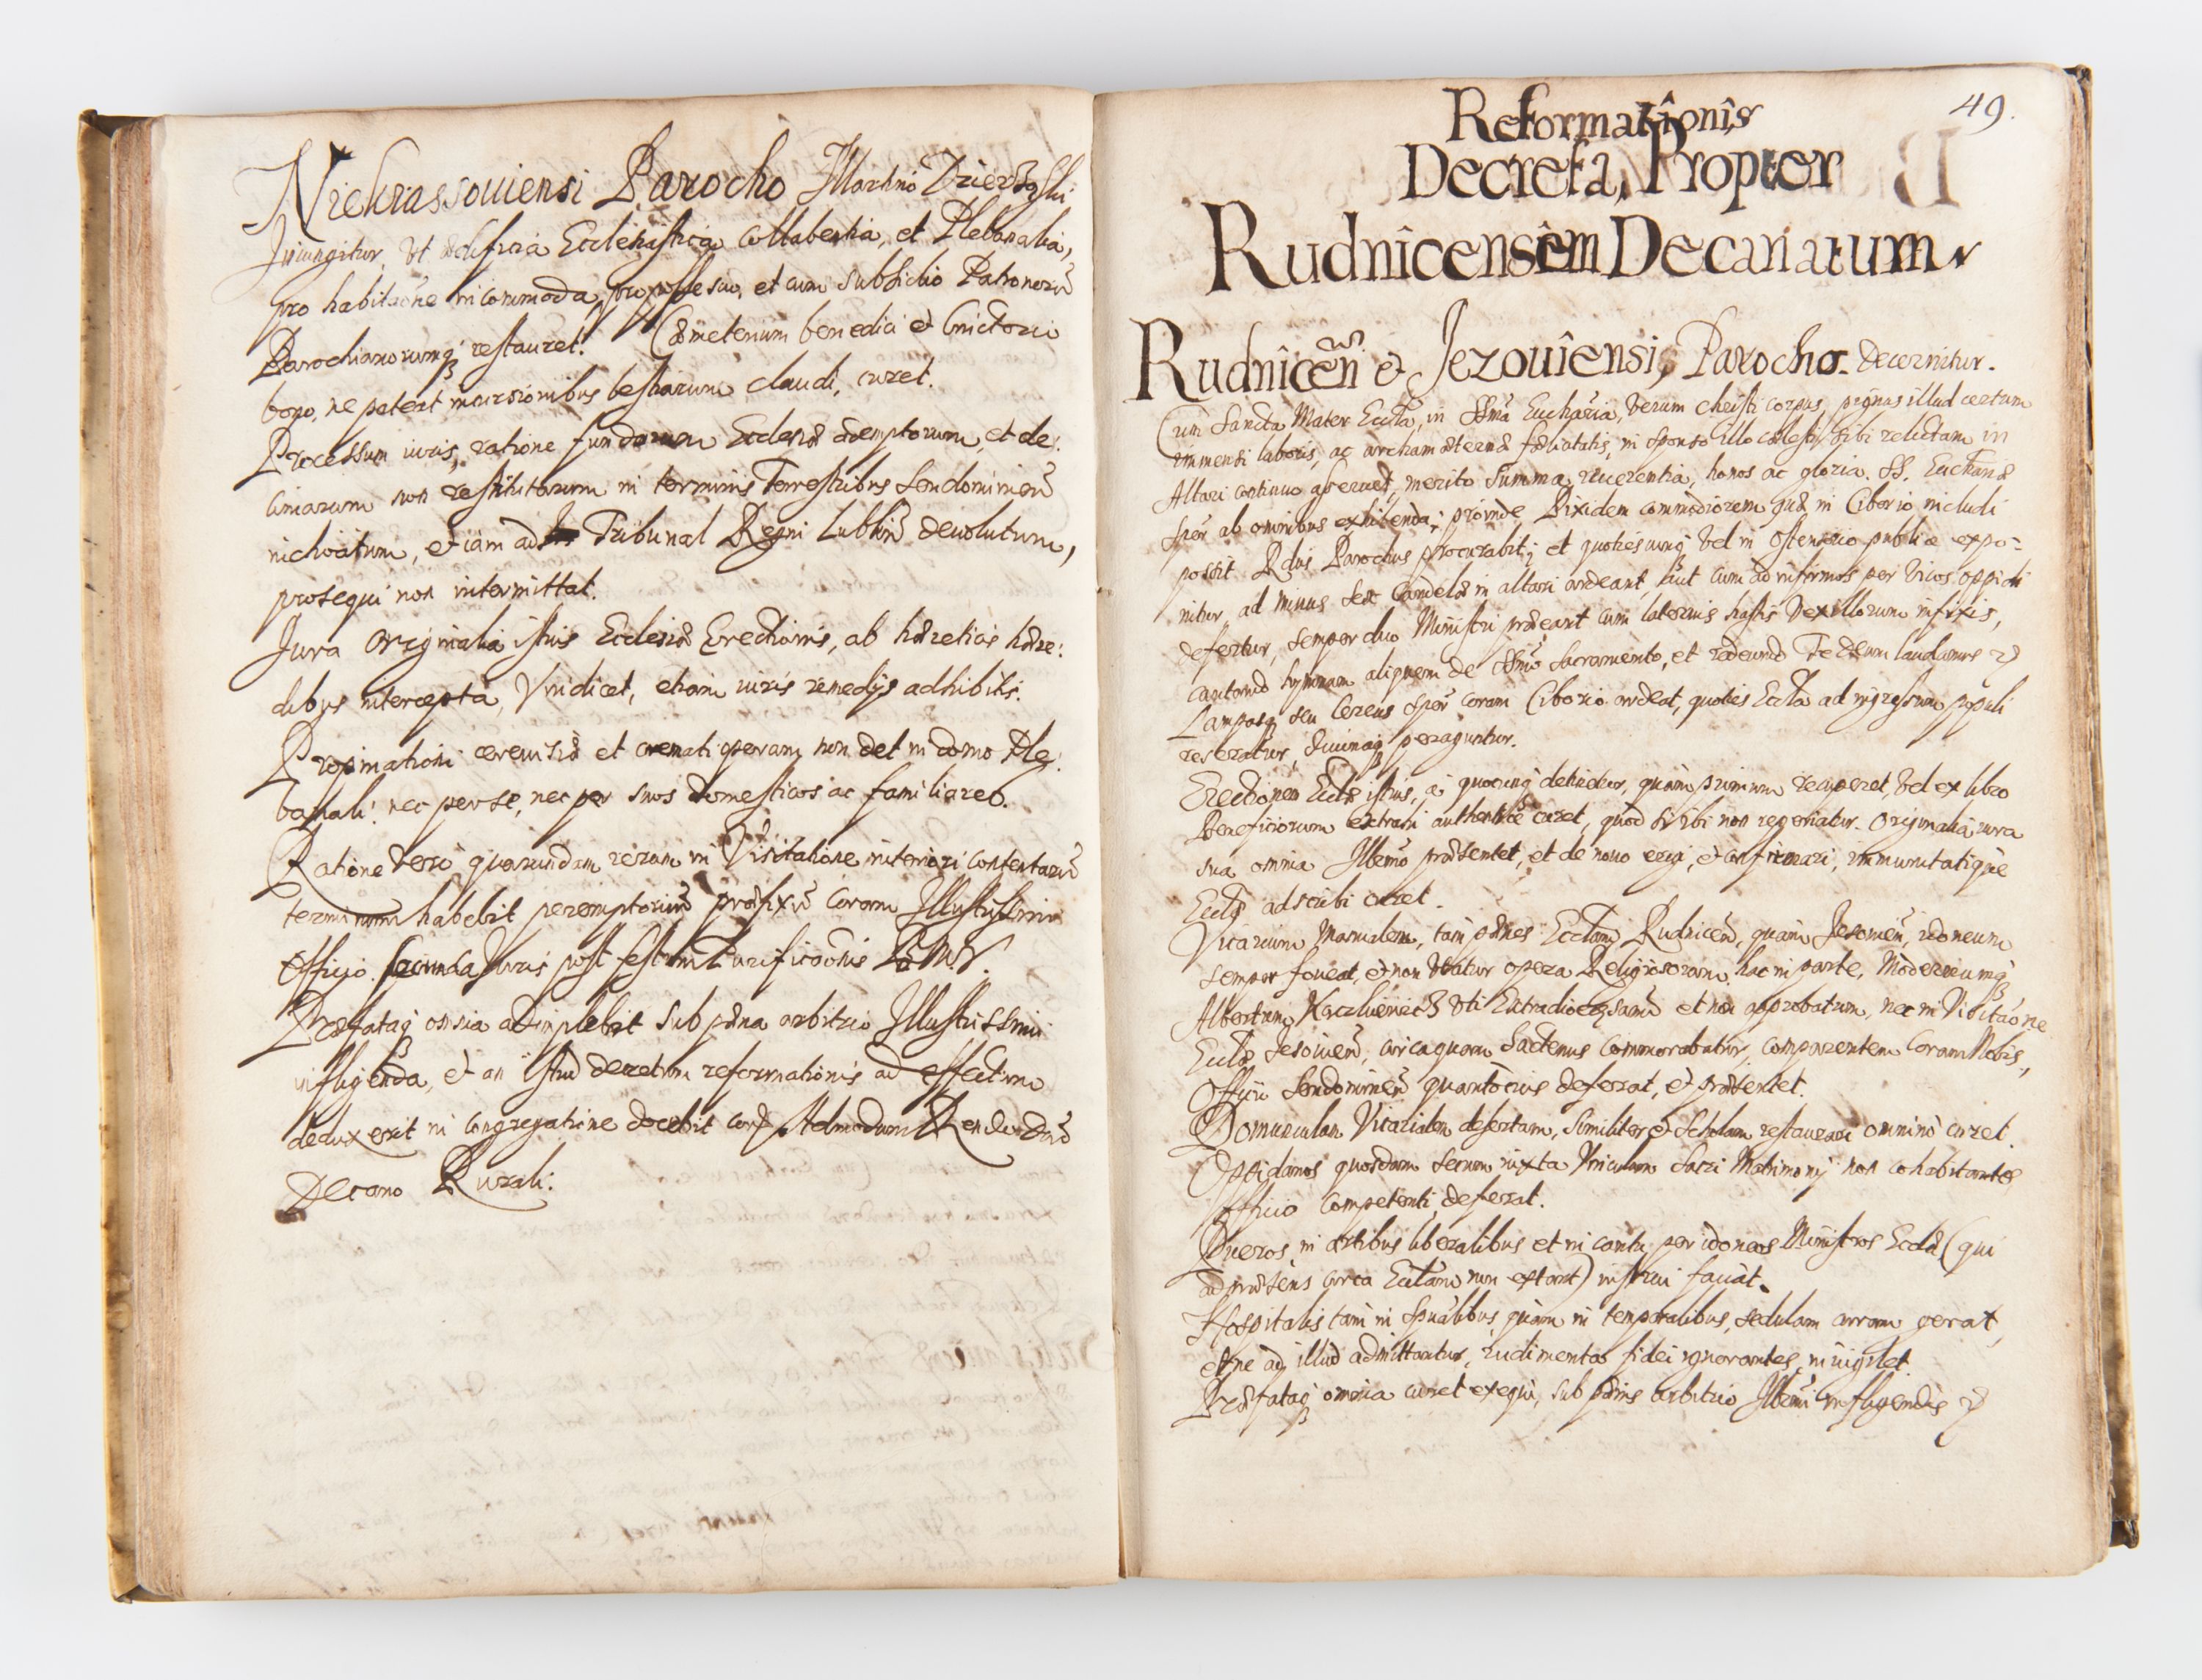 Niekrassouiensi Parocho Martino
Iniungitur, Vt ædificia Ecclesiastica collabentia, et Plebanalia,
pro habitaõne incommoda, pro posse suo, et cum subsidio Patronorũ
Parochianorumq; restauret. Cæmeterium benedici et
bono, ne pateat incursionibus bestiarum claudi, curet.
Processum iuris, ratione fundorum Ecclesiæ ademptorum, et de:
cimarum non restitutarum in terminis Terrestribus Sendomirien̄
inchoatum, et iam ad Tribunal Regni Lublin̄ deuolutum,
prosequi non intermittat.
Jura Originalia istius Ecclesiæ Erectionis, ab hæreticis hære:
dibus intercepta, Vindicet, etiam iuris remedijs adhibitis.
Propinationi cereuisiæ et cremati operam non det in domo Ple:
banali: nec per se, nec per suos domesticos ac familiares.
Ratione Vero quarundam rerum in Visitatione interiori contentarũ
terminum habebit peremptorium præfixũ Coram Illustrissimi
Officio. secunda Iuris post festum Purificaõnis
Præfataq; omnia adimplebit sub pæna arbitrio Illustrissimi
infligenda, et an istud decretum reformationis ad effectum
deduxerit in Congregatione docebit coram Admodum Rendo Dnõ
Decano Rurali.
49.
Reformationis
Decreta, Propter
Rudnicensem Decanatum
Rudnicen̄ et Jezouiensi, Parocho. Decernitur.
Cum Sancta Mater Eccla, in SSma Eucharia, Verum Christi corpus, pignus illud certum
immensi laboris, ac arrham æternæ fœlicitatis, ni sponso illo cælesti sibi relictam in
Altari continuo asseruet, merito summa reuerentia, honos ac gloria. SS. Euchariæ
sper ab omnibus exhibenda; proinde Pixidem commodiorem quæ in Ciborio includi
possit Rdus Parochus procurabit; et quotiescunq; Vel in Ostensorio publice expo:
nitur, ad minus sex Candelæ in altari ardeant, aut cum ad infirmos per Vicos oppidi
defertur, semper duo Ministri præeant cum laternis hastis Vexillorum infixis,
cantando hymnum aliquem de SSmo Sacramento, et redeundo Te Deum laudamus
Lampasq; seu Cereus sper coram Ciborio ardeat, quoties Eccla ad ingressum populi
reseratur, diuinaq; peraguntur.
Erectionem Ecclæ istius, a quocunq; detinetur, quam primum recuperet, Vel ex libro
Beneficiorum extrahi authentice curet, quod si ibi non reperiatur. Originalia iura
sua omnia Illmo præsentet, et de nouo erigi, et confirmari, immunitatique
Ecclæ adscribi curet.
Vicarium Manualem, tam penes Ecclam Rudnicen̄, quam Jesouien̄, idoneum
semper foueat, et non Vtatur opera Religiosorum hac in parte, Modernumq;
Albertum Vti Extradioecesanũ et non approbatum, nec in Visitaõne
Ecclæ Jesouien̄, circa quam hactenus commorabatur, comparentem Coram Nobis,
Officio Sendomirien̄ quantocius deferat, et præsentet.
Domunculam Vicarialem desertam, similiter et Scholam restaurari omnino curet.
Oppidanos quosdam secum iuxta Vinculum Sacri Matrimonij non cohabitantes
Officio Competenti deferat.
Pueros in artibus liberalibus et in cantu per idoneos Ministros Ecclæ (qui
ad præsens circa Ecclam non extant) instrui faciat.
Hospitalis tam in Spualibus, quam in temporalibus, sedulam curam gerat,
et ne ad illud admittantur, rudimenta fidei ignorantes, inuigilet.
Præfataq; omnia curet exequi, sub pœnis arbitrio Illmi infligendis